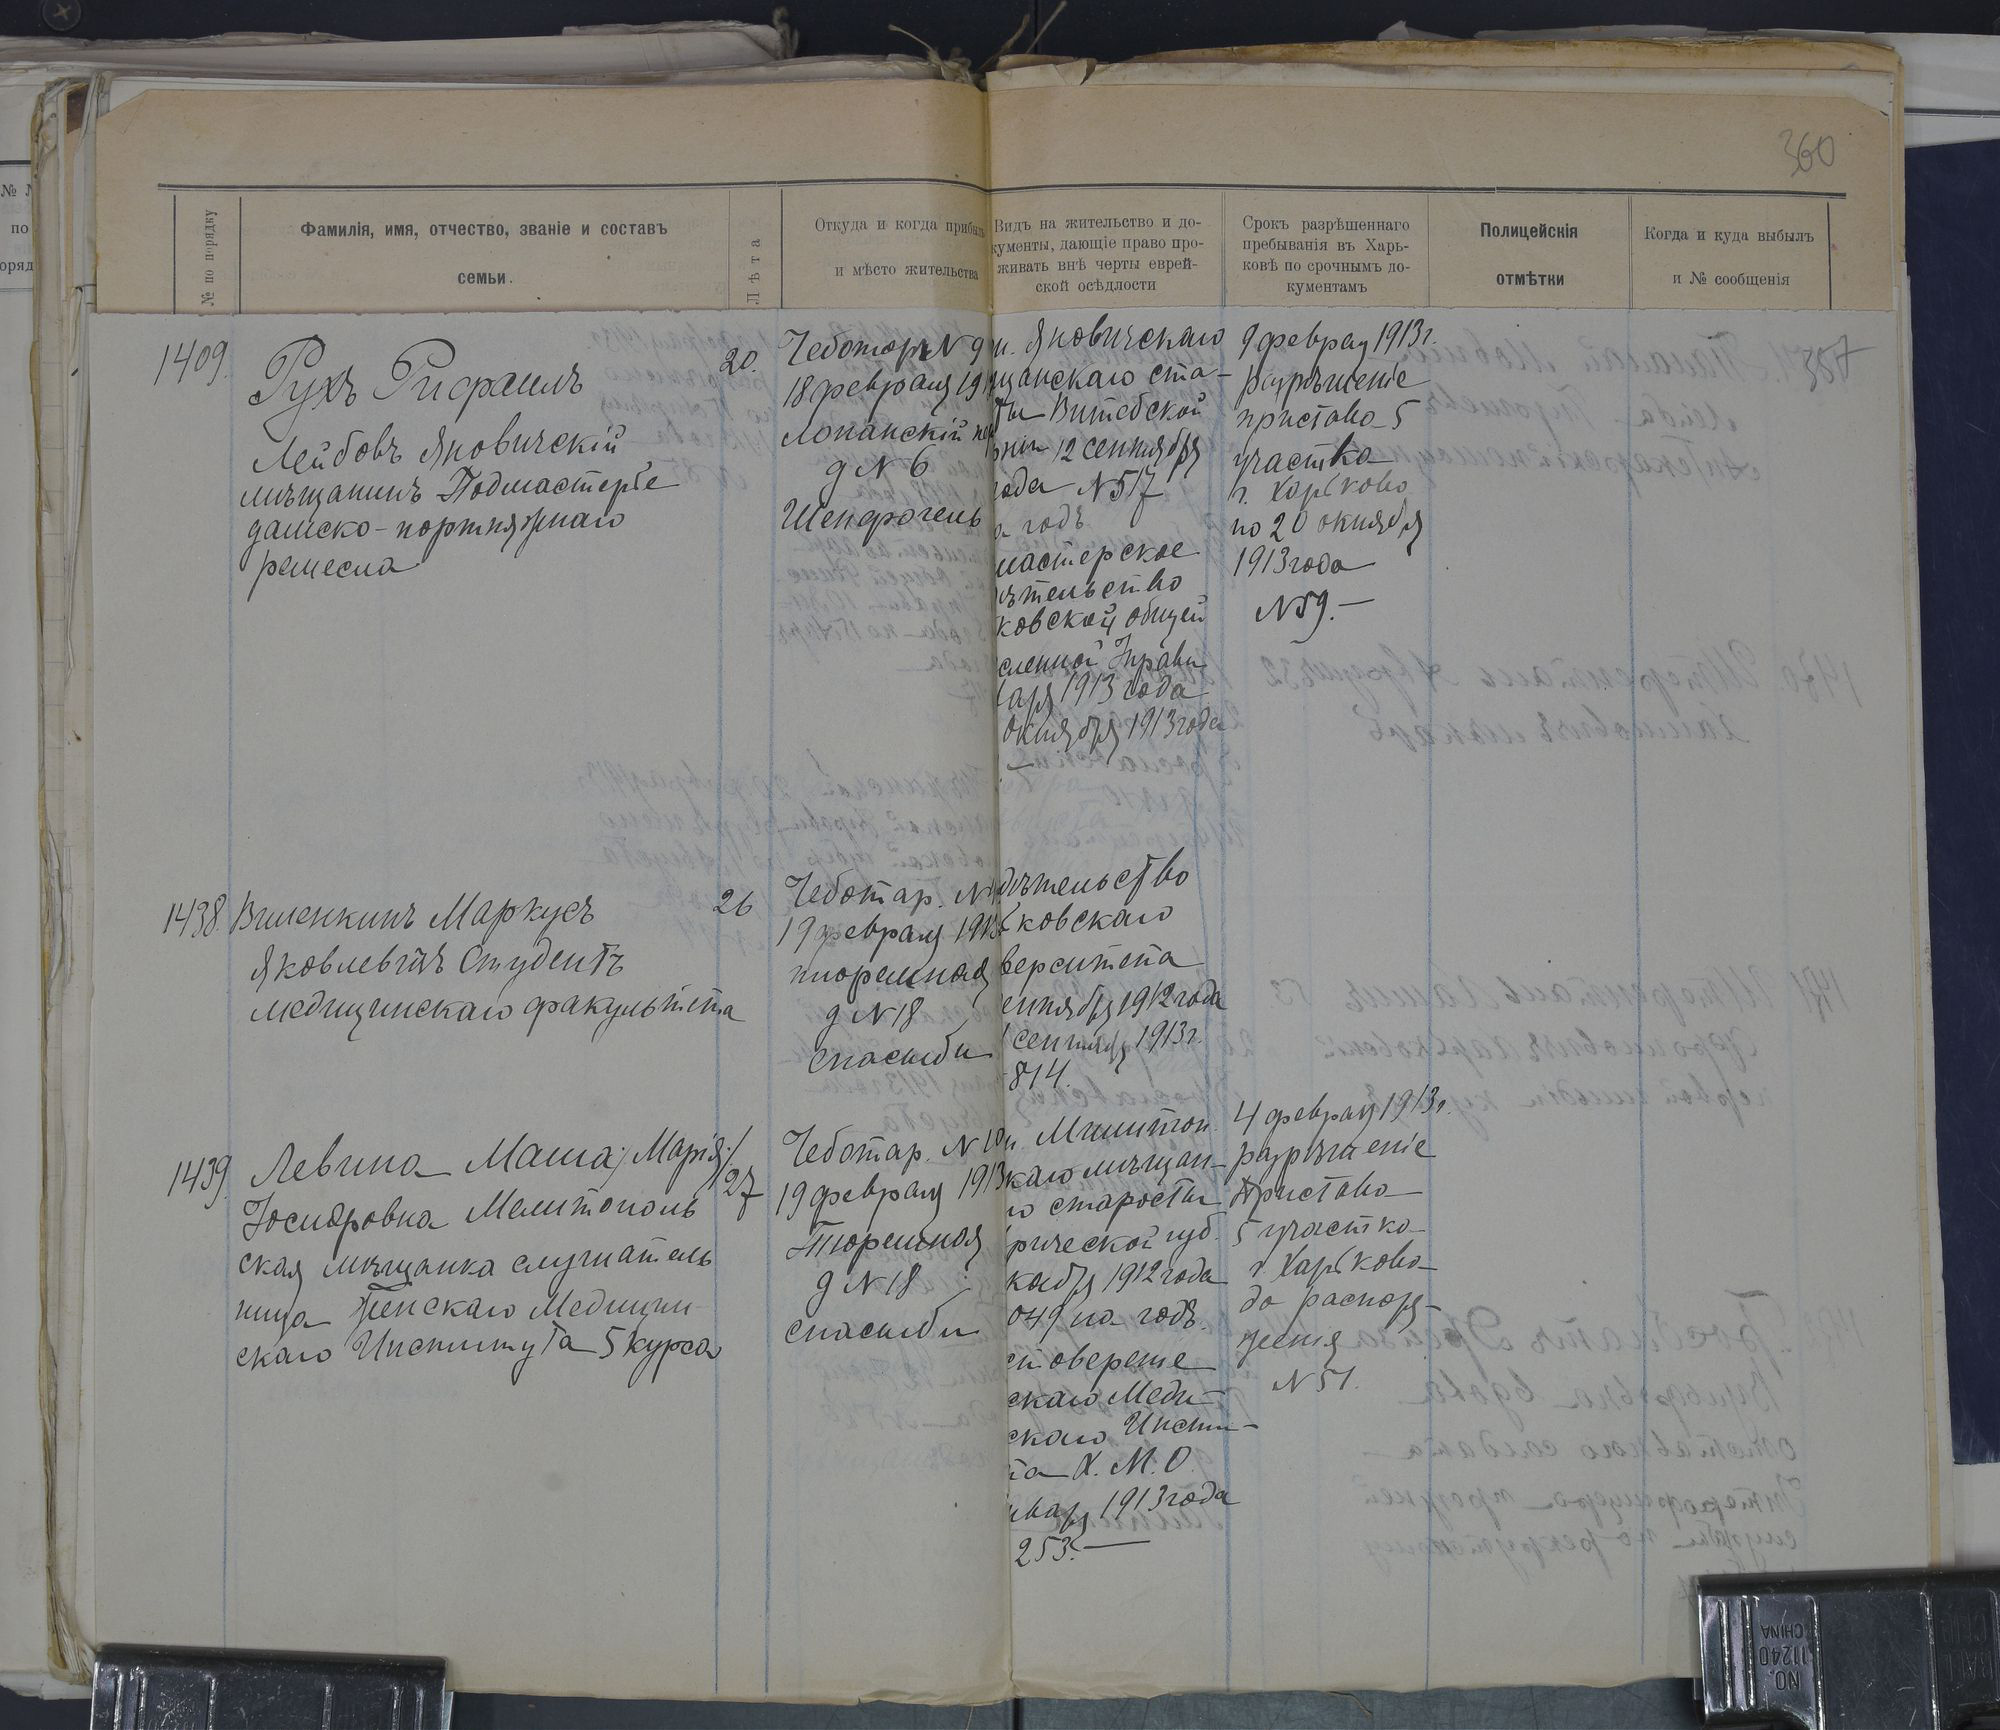 360
№ по порядку
Фамилія, имя, отчество, званіе и составъ
семьи.
Лѣта
Откуда и когда прибылъ
и мѣсто жительства
Видъ на жительство и до-
кументы, дающіе право про-
живать внѣ черты еврей-
ской осѣдлости
Срокъ разрѣшеннаго
пребыванія въ Харь-
ковѣ по срочнымъ до-
кументамъ
Полицейскія
отмѣтки
Когда и куда выбылъ
и № сообщенія
1409.
Рухъ
Лейбовъ Яновичскій
мѣщанинъ Подмастерье
дамско-портняжнаго
ремесла
20.
Чеботар N 9
18 февраля 191
Лопанскій
д N 6
Яновичскаго
щанскаго ста-
ты Витебской
12 сентября
года N 517
годъ
мастерское
ѣтельство
ковской общей
сленной Управы
1913 года
Октября 1913 года
9 февраля 1913 г.
разрѣшеніе
пристава 5
участка
г. Харькова
по 20 октября
1913 года
N 59.—
1438.
Виленкинъ Маркусъ
Яковлевичъ Студентъ
медицинскаго факультета
26
Чеботар. N
19 февраля 1913
тюремная
д N 18
спасыби
дѣтельство
ковскаго
верситета
ентября 1912 года
сентября 1913 г.
814.
1439.
Левина Маша /Марія/
Іосифовна Мелитополь
ская мѣщанка слушатель
ница Женскаго Медицин
скаго Института 5 курса
27
Чеботар. N 10
19 февраля 1913
Тюремная
д N 18
спасыби
Мелитоп.
каго мѣщан-
о старосты
рической губ.
кабря 1912 года
049 на годъ.
стовереніе
скаго Меди-
скаго Инсти-
та Х. М. О.
нваря 1913 года
253.—
4 февраля 1913 г.
разрѣшеніе
Пристава
5 участка
г. Харькова
до распоря-
женія
N 51.
NO.
11240
CHINA